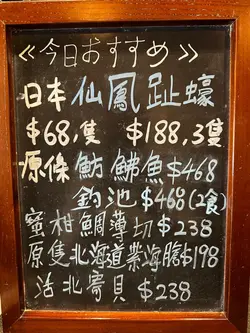 ≪今日おすすめ≫
日本仙鳳趾蠔
$68,隻 $188,3隻
原條魴鮄魚$468
釣池$468(2食)
蜜柑鯛薄切$238
原隻北海道紫海膽$198
活北寄貝 $238